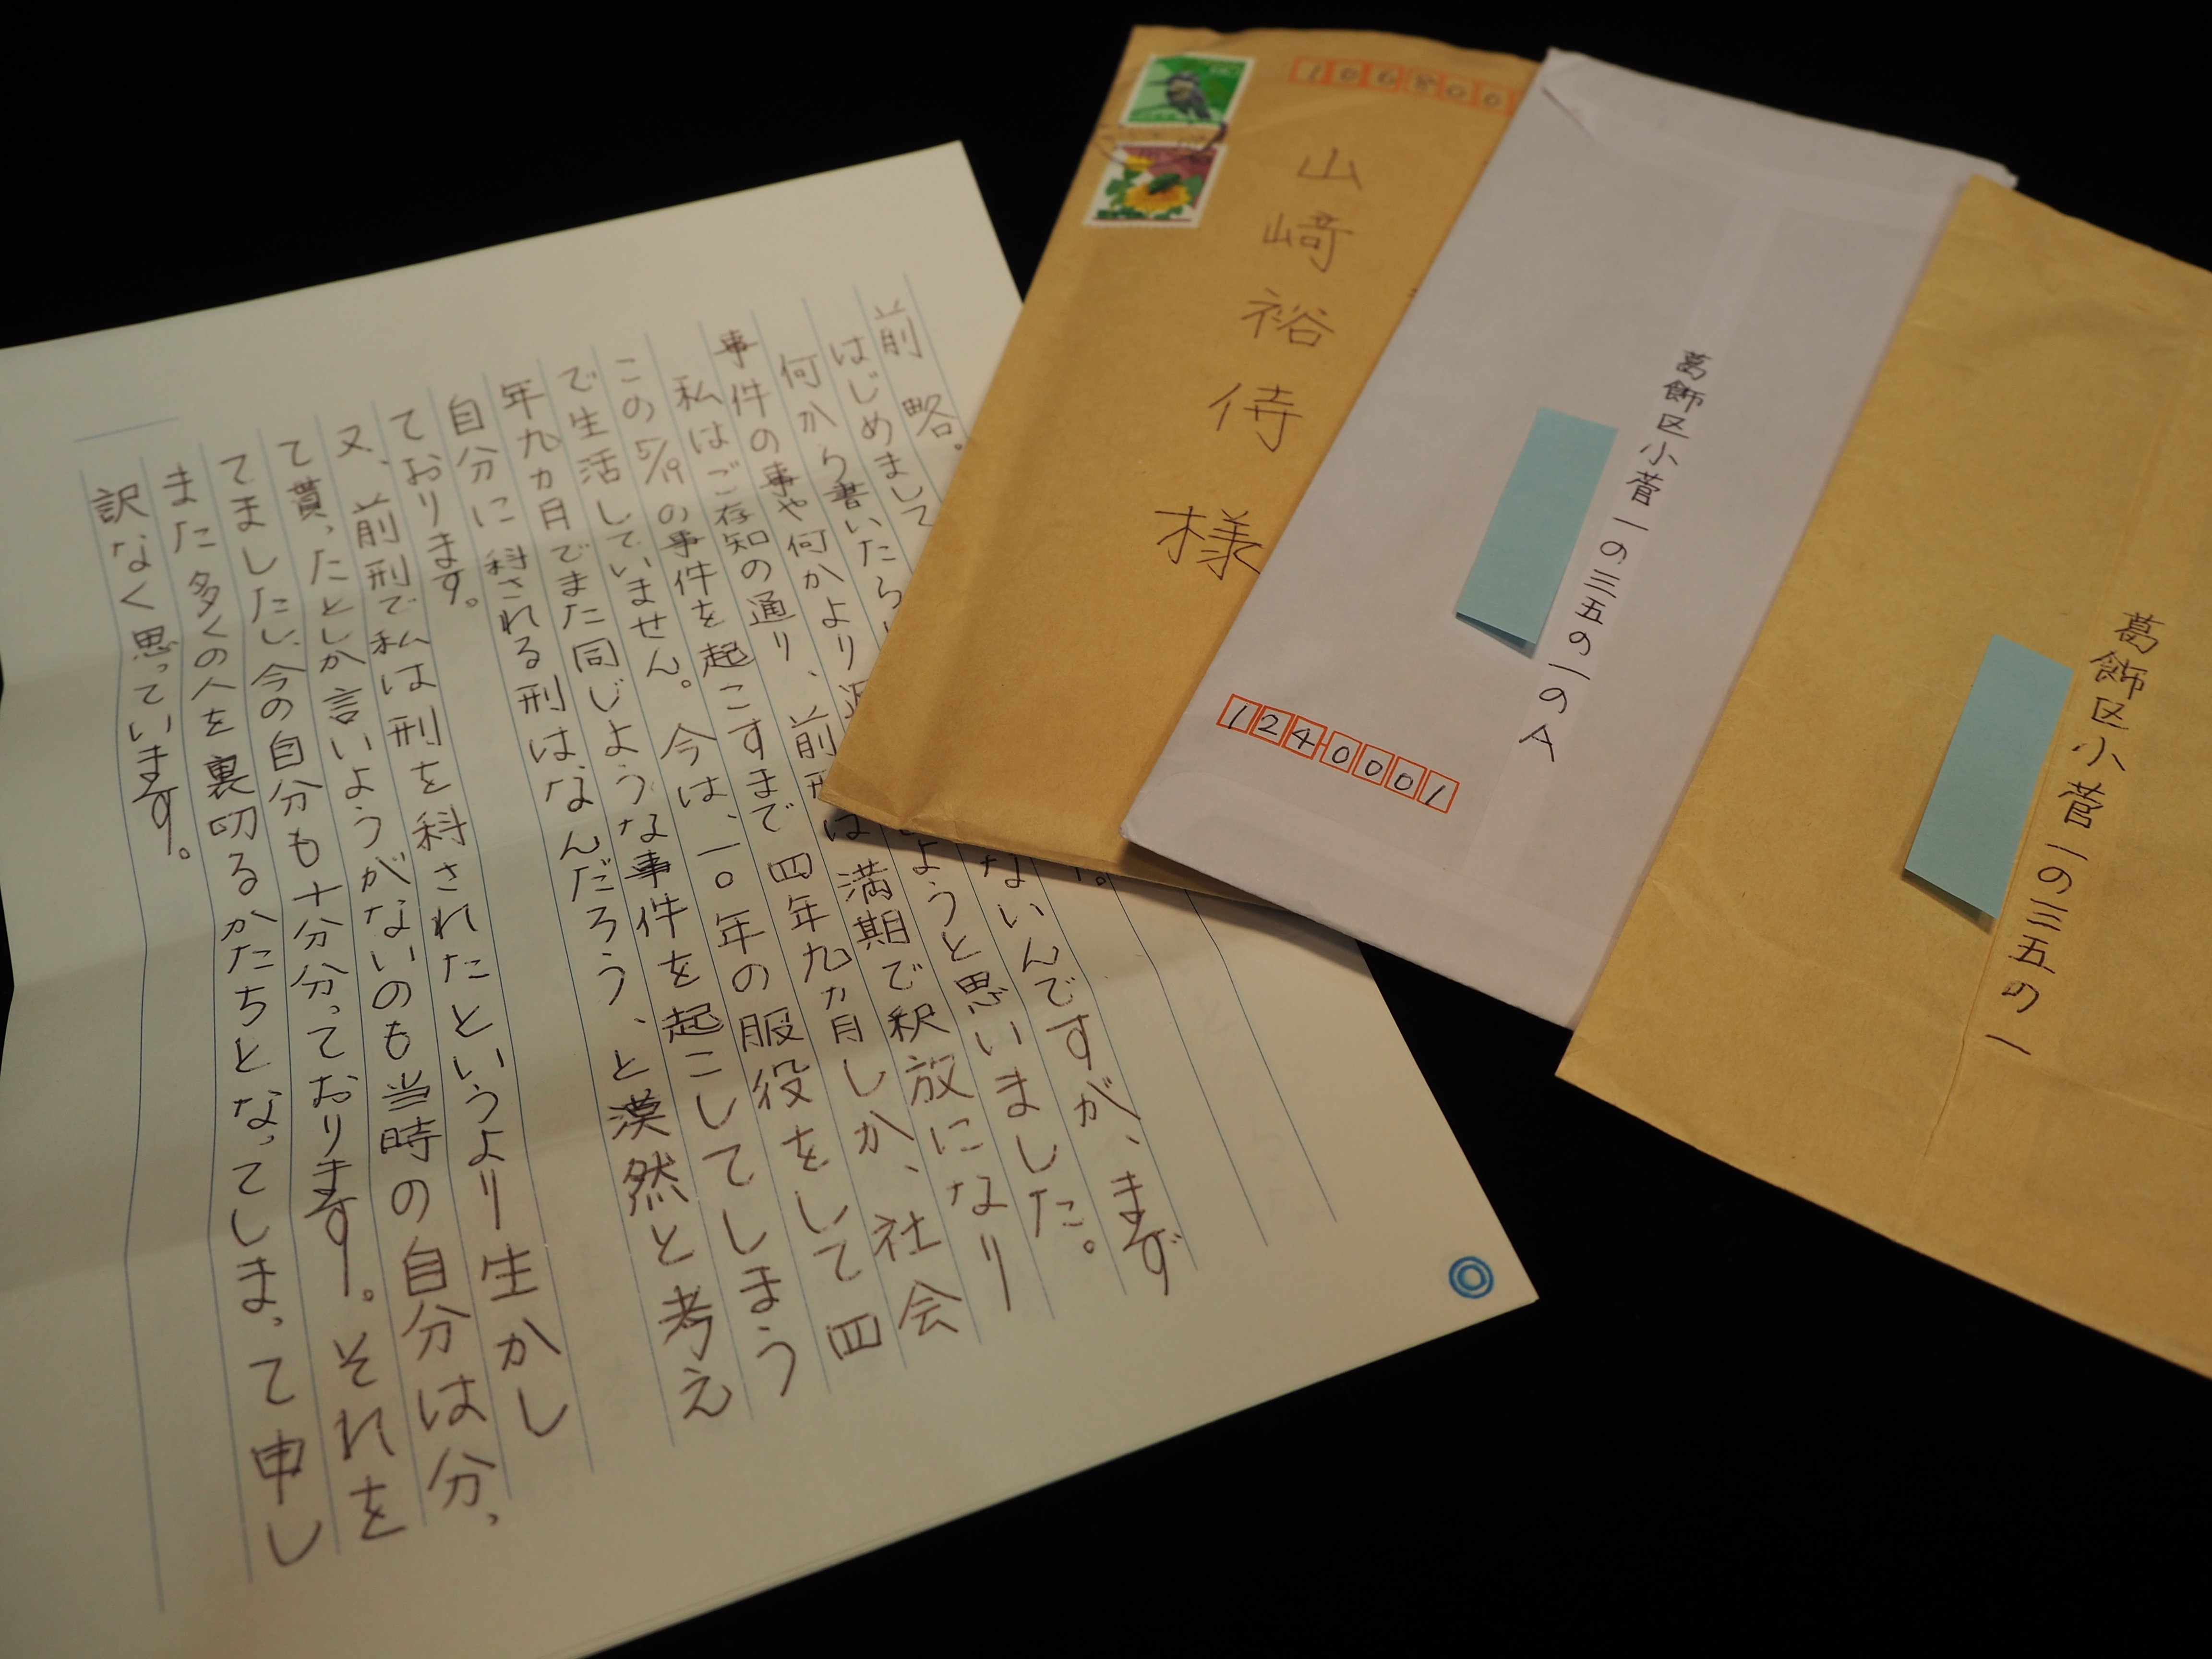 前略。
はじめまして
何から書いたら ないんですが、まず
事件の事や何かより ようと思いました。
私はご存知の通り、前刑は満期で釈放になり
この5/19の事件を起こすまで四年九ヵ月しか、社会
で生活していません。今は、一〇年の服役をして四
年九ヵ月でまた同じような事件を起こしてしまう
自分に科される刑はなんだろう、と漠然と考え
ております。
又、前刑で私は刑を科されたというより生かし
て貰ったとしか言いようがないのも当時の自分は分っ
てましたし、今の自分も十分分っております。それを
また多くの人を裏切るかたちとなってしまって申し
訳なく思っています。
106800
山﨑裕侍様
葛飾区小菅一の三五の一のA
1240001
葛飾区小菅一の三五の一